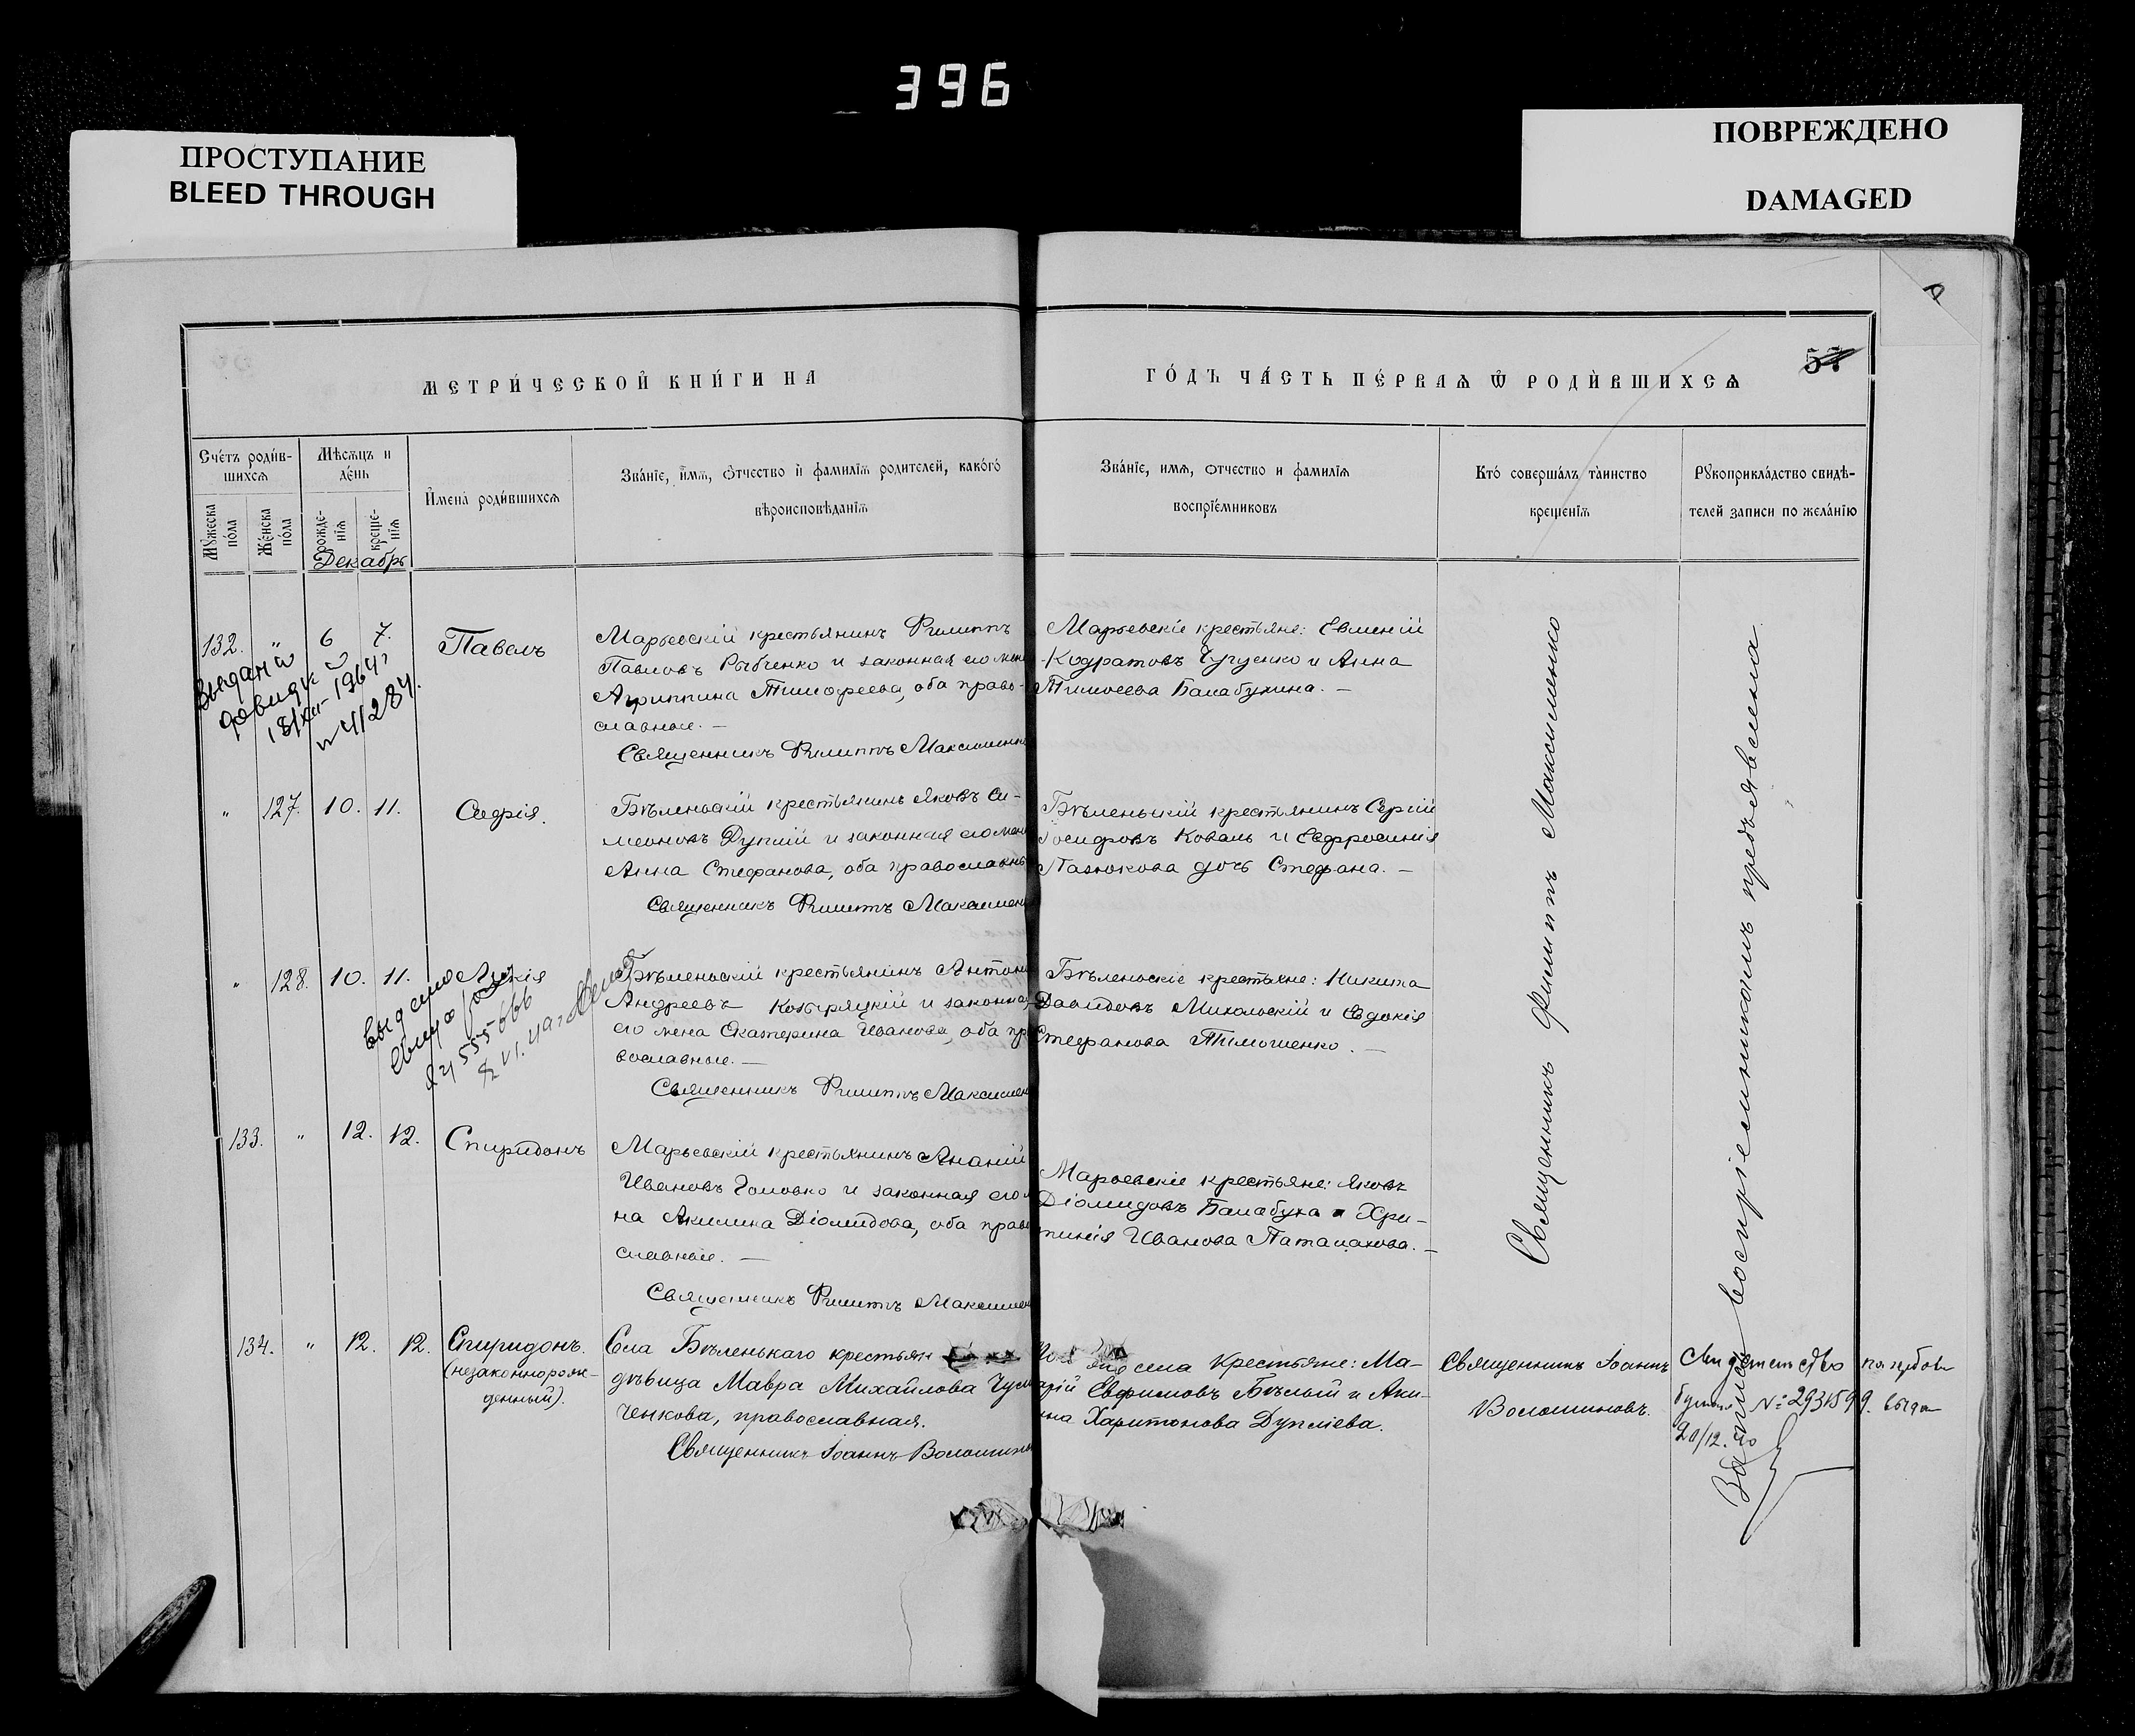 396
ПРОСТУПАНИЕ
BLEED THROUGH
ПОВРЕЖДЕНО
DAMAGED
57
МЕТРИ́ЧЕСКОЙ КНИ́ГИ НА
ГО́ДЪ ЧА́СТЬ ПЕ́РВАѦ Ѿ РОДИ́ВШИХСѦ
Сче́тъ роди́в-
шихсѧ
Мѣсѧцъ и
де́нь
Мꙋ́жеска
по́ла
Же́нска
по́ла
рожде-
нїѧ
креще-
нїѧ
И҆мена́ роди́вшихсѧ
Зва́нїе, и҆́мѧ, ѻ҆́тчество и҆ фами́лїѧ роди́телей, како́гѡ
вѣроисповѣ́данїѧ
Зва́нїе, имѧ, ѻтчество и фами́лїѧ
воспрїе́мниковъ
Кто́ совершалъ та́инство
креще́нїѧ
Рꙋкоприкла́дство свидѣ́-
телей записи по жела́нїю
Декабрь
132. " 6 7. Павелъ
Марьевскій крестьянинъ Филиппъ
Павловъ Рыбченко и законная его жена
Агриппина Тимофеева, оба право-
славные. —
Священникъ Филиппъ Максименко
Марьевскіе крестьяне: Евмений
Кодратовъ Чугуенко и Анна
Тимофеева Балабухина. —
18/XII-1964
" 127. 10. 11. Софія.
Бѣленьскій крестьянинъ Яковъ Си-
меоновъ Дуплій и законная его жена
Анна Стефанова, оба православны
Священникъ Филиппъ Максимен
Бѣленьскій крестьянинъ Сергій
Іосифовъ Коваль и Евфросинія
Пазюкова дочь Стефана. —
" 128. 10. 11. Лукія
555666
Бѣленьскій крестьянинъ Антон
Андреевъ Козыряцкій и законная
его жена Екатерина Иванова, оба пр
вославные. —
Священникъ Филиппъ Максимен
Бѣленьскіе крестьяне: Никита
Давидовъ Михальскій и Евдокія
Стефанова Тимошенко. —
133. " 12. 12. Спиридонъ
Марьевскій крестьянинъ Ананій
Ивановъ Головко и законная его
на Акилина Діомидова, оба право
славные. —
Священникъ Филиппъ Максимен
Марьевскіе крестьяне: Яковъ
Діомидовъ Балабуха и Хри-
тинія Иванова Паталахова. —
134. " 12. 12. Спиридонъ.
(незаконнорож-
денный).
Села Бѣленькаго крестьян
дѣвица Мавра Михайлова Чум
ченкова, православная.
Священникъ Іоаннъ Волошинов
села Крестьяне: Ма-
Евфимовъ Бѣлый и Аки-
на Харитонова Дуплiева.
Священникъ Іоаннъ
Волошиновъ.
№ 2931599.
20/12.
Священникъ Филиппъ Максименко
Запись воспріемникомъ предъявлена